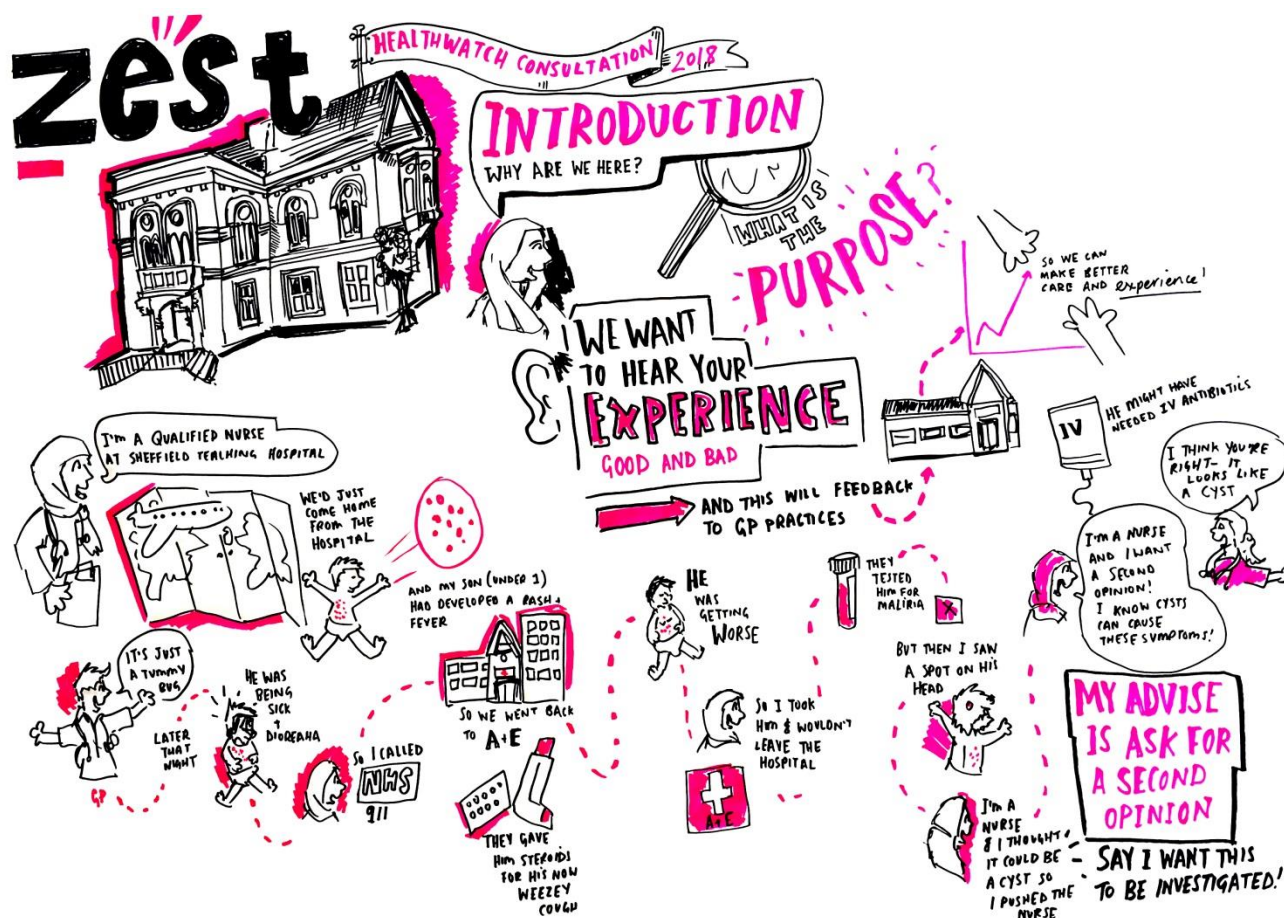 zest
HEALTHWATCH CONSULTATION 2018
INTRODUCTION
WHY ARE WE HERE?
WHAT IS
THE
PURPOSE?
SO WE CAN
MAKE BETTER
CARE AND experience!
WE WANT
TO HEAR YOUR
EXPERIENCE
GOOD AND BAD
AND THIS WILL FEEDBACK
TO GP PRACTICES
I'M A QUALIFIED NURSE
AT SHEFFIELD TEACHING HOSPITAL
WE'D JUST
COME HOME
FROM THE
HOSPITAL
AND MY SON (UNDER 1)
HAD DEVELOPED A RASH +
FEVER
IT'S JUST
A TUMMY
BUG
GP
LATER
THAT
NIGHT
HE WAS
BEING
SICK
+
DIOREAHA
SO I CALLED
NHS
911
SO WE WENT BACK
TO A+E
THEY GAVE
HIM STEROIDS
FOR HIS NOW
WEEZEY
COUGH
HE
WAS
GETTING
WORSE
SO I TOOK
HIM & WOULDN'T
LEAVE THE
HOSPITAL
A+E
THEY
TESTED
HIM FOR
MALIRIA
X
BUT THEN I SAW
A SPOT ON HIS
HEAD
I'M A
NURSE
& I THOUGHT
IT COULD BE
A CYST SO
I PUSHED THE
NURSE
I'M A NURSE
AND I WANT
A SECOND
OPINION!
I KNOW CYSTS
CAN CAUSE
THESE SYMPTOMS!
IV
HE MIGHT HAVE
NEEDED IV ANTIBIOTICS
I THINK YOU'RE
RIGHT - IT
LOOKS LIKE
A CYST
MY ADVISE
IS ASK FOR
A SECOND
OPINION
SAY I WANT THIS
TO BE INVESTIGATED!